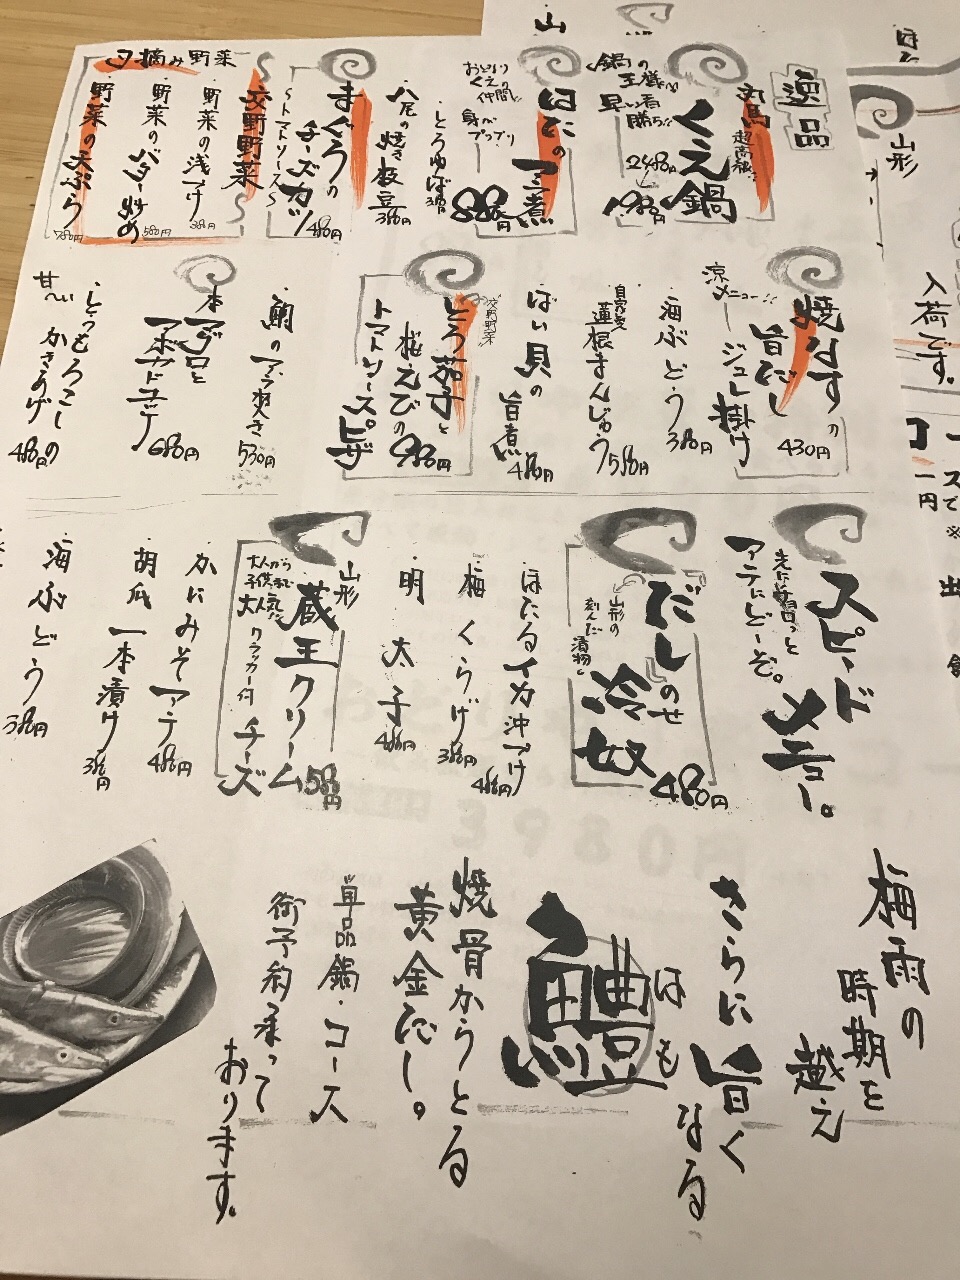 逸品
くえ鍋
鍋の王様
早い者勝ち!!
2480円
1980円
ほたの
アラ煮
身がプリプリ
880円
とうゆば 380円
八尾の焼き枝豆 380円
まぐろの
チーズカツ
〜トマトソース〜
480円
交野野菜
夕摘み野菜
・野菜の浅づけ 380円
・野菜のバター炒め 580円
・野菜の天ぷら 780円
焼なすの
旨だし
ジュレ掛け
涼メニュー!!
430円
・海ぶどう 380円
自家製
・蓮根まんじゅう 580円
・ばい貝の旨煮 480円
交野野菜
とろ茄子と
桜えびの
トマトソースピザ
980円
・鯛のアラ炊き 530円
本マグロと
アボカドユッケ
680円
・とうもろこしの
甘〜い かきあげ 480円
スピードメニュー。
先に注文っと
アテにどーぞ。
だしのせ
冷奴
山形の
刻んだ
漬物
480円
・ほたるイカ沖づけ 480円
・梅くらげ 380円
・明太子 480円
山形
蔵王クリーム
チーズ
大人から
子供まで
大人気!!
クラッカー付
580円
・かにみそアテ 480円
・胡瓜一本漬け 380円
・海ぶどう 380円
梅雨の
時期を
越え
さらに旨く
なる
はも
鱧
焼骨からとる
黄金だし。
単品鍋・コース
御予約承って
おります。
山形
入荷です。